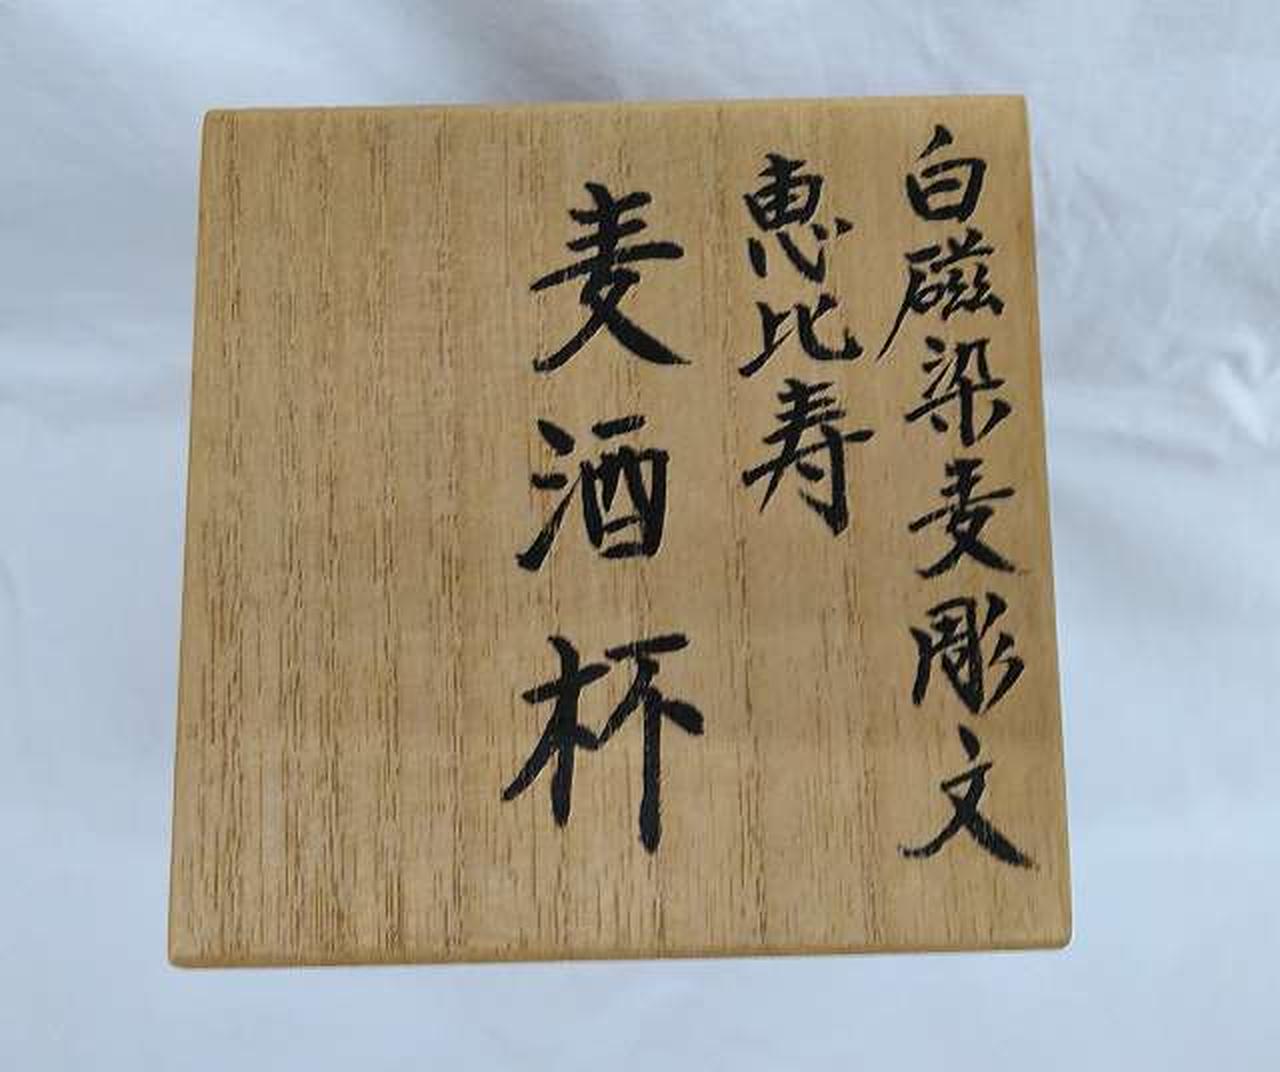 白磁染麦彫文
恵比寿
麦酒杯